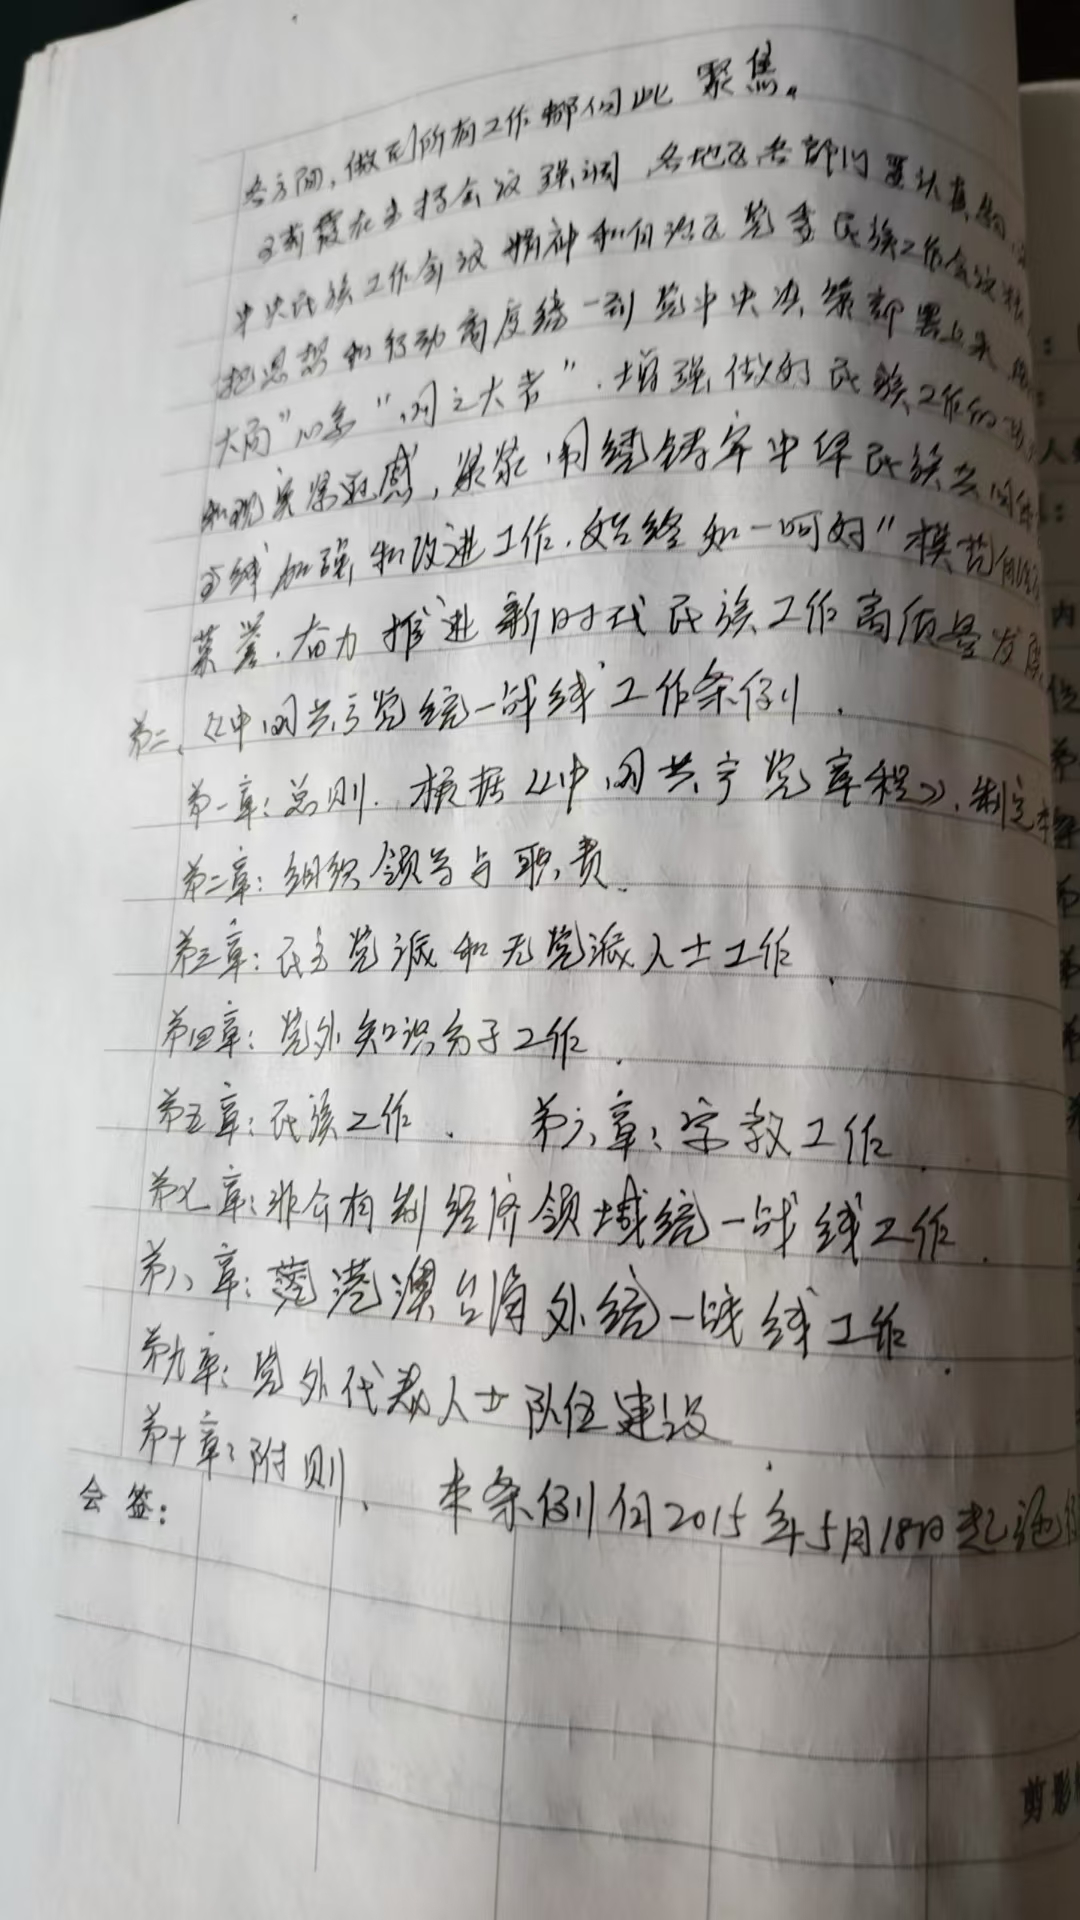 各方面，做到所有工作都向此聚焦。
王莉霞在主持会议强调，各地区各部门要认真
中央民族工作会议精神和自治区党委民族工作会议
把思想和行动高度统一到党中央决策部署上来，
大局”心系“国之大者”，增强做好民族工作的
和现实紧迫感，紧紧围绕铸牢中华民族共同体
主线加强和改进工作，始终如一呵好“模范自治
荣誉，奋力推进新时代民族工作高质量发展
第二、《中国共产党统一战线工作条例》.
第一章：总则. 根据《中国共产党章程》，制定本
第二章：组织领导与职责.
第三章：民主党派和无党派人士工作.
第四章：党外知识分子工作.
第五章：民族工作. 第六章：宗教工作.
第七章：非公有制经济领域统一战线工作.
第八章：港澳台海外统一战线工作.
第九章：党外代表人士队伍建设
第十章：附则. 本条例自2015年5月18日起施行
会签：
剪影